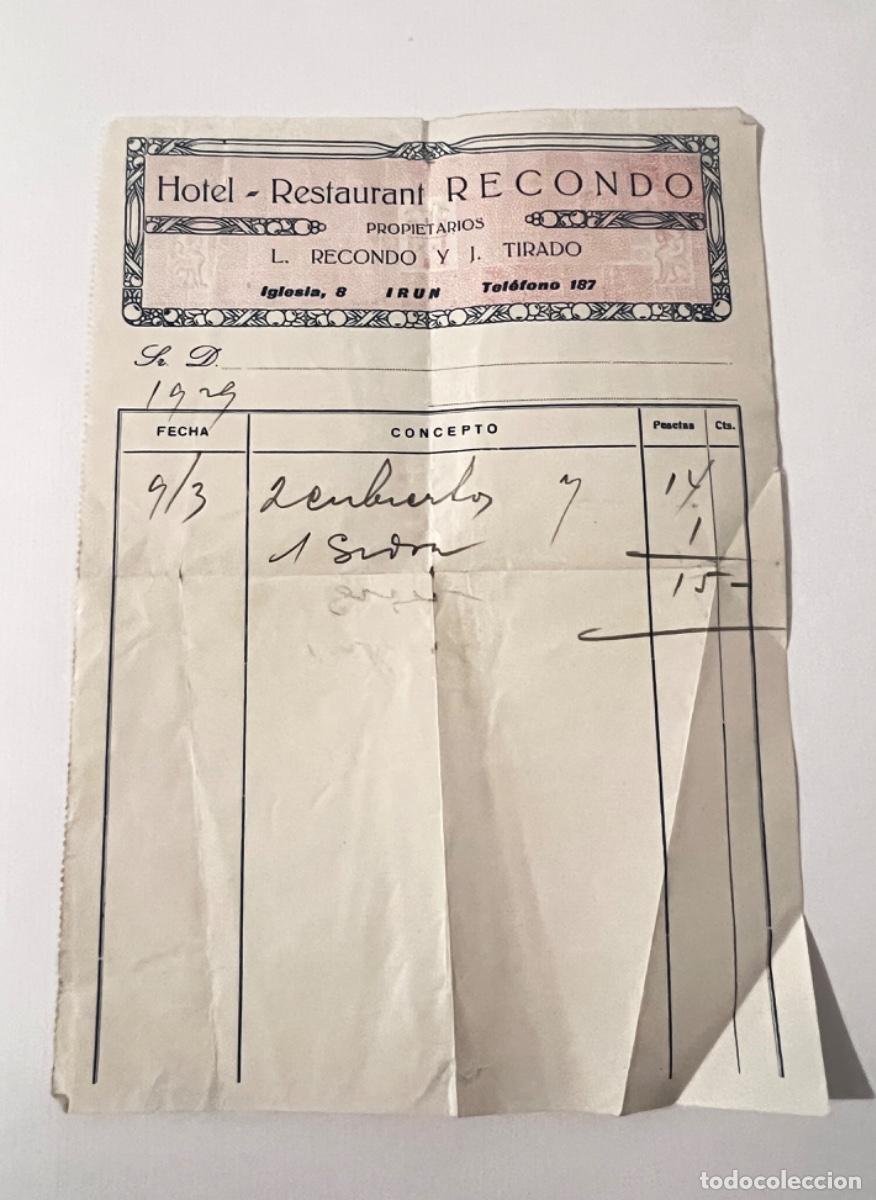 Hotel - Restaurant RECONDO
PROPIETARIOS
L. RECONDO Y J. TIRADO
Iglesia, 8 IRUN Teléfono 187
Sr. D.
1929
FECHA CONCEPTO Pesetas Cts.
9/3 2 cubiertos 7 14
1 Sidra 1
15 -
todocoleccion